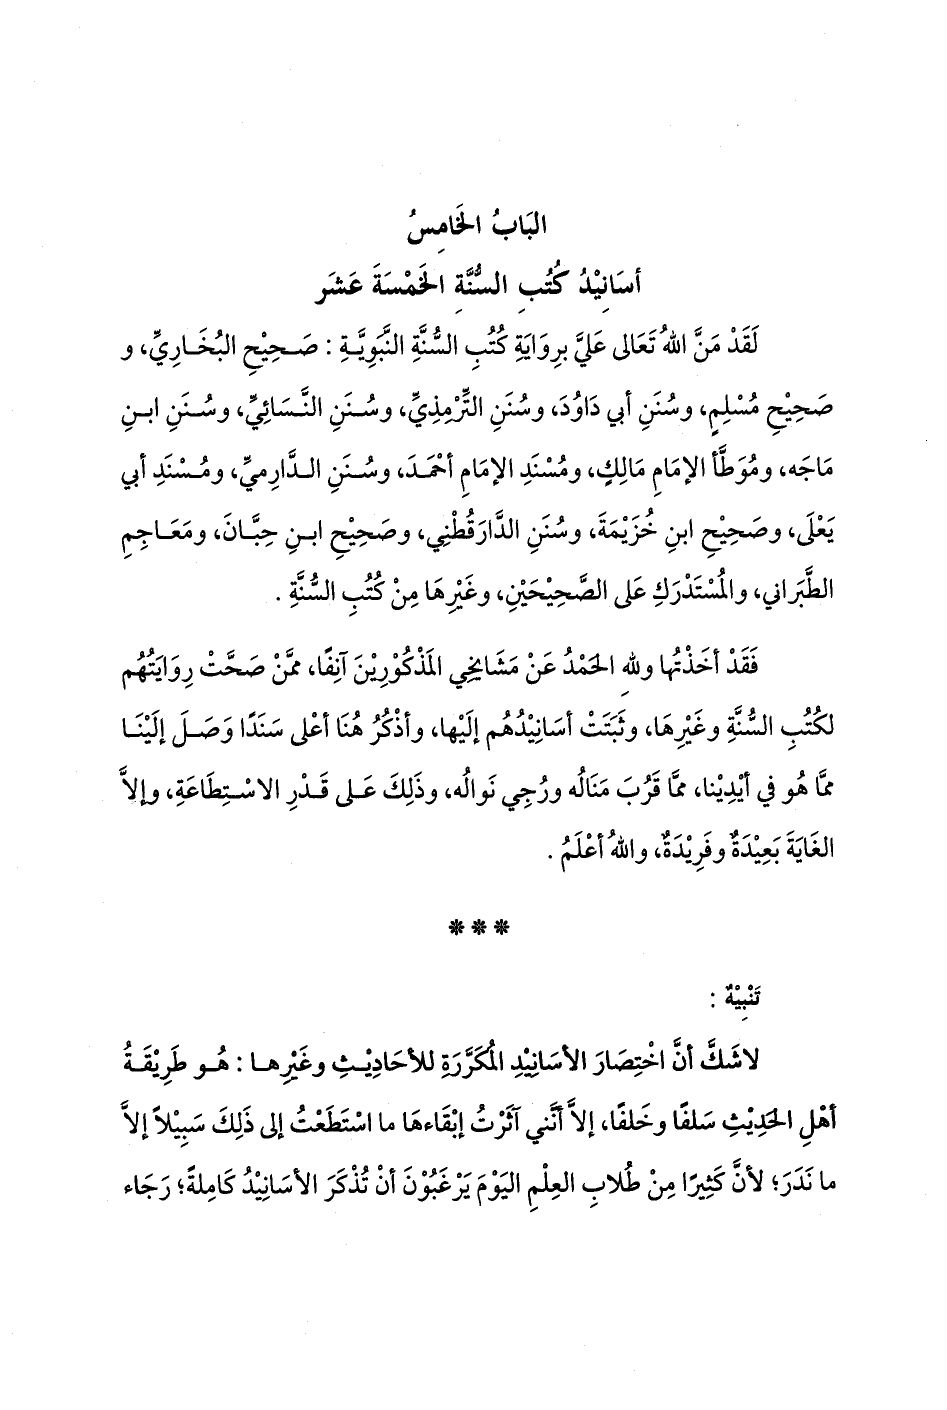 البَابُ الخَامِسُ
أسَانِيْدُ كُتُبِ السُّنَّةِ الخَمْسَةَ عَشَر
لَقَدْ مَنَّ اللهُ تَعَالى عَليَّ بِروَايَةِ كُتُبِ السُّنَّةِ النَّبَوِيَّةِ : صَحِيْحِ البُخَارِيِّ، و
صَحِيْحِ مُسْلِمٍ، وسُنَنِ أبي دَاوُدَ، وسُنَنِ التِّرْمِذِيِّ، وسُنَنِ النَّسَائِيِّ، وسُنَنِ ابنِ
مَاجَه، ومُوَطَّأ الإمَامِ مَالِكٍ، ومُسْنَدِ الإمَامِ أحْمَدَ، وسُنَنِ الدَّارِميِّ، ومُسْنَدِ أبي
يَعْلَى، وصَحِيْحِ ابنِ خُزَيْمَةَ، وسُنَنِ الدَّارَقُطْنِي، وصَحِيْحِ ابنِ حِبَّانَ، ومَعَاجِمِ
الطَّبَراني، والمُسْتَدْرَكِ عَلى الصَّحِيْحَيْنِ، وغَيْرِهَا مِنْ كُتُبِ السُّنَّةِ .
فَقَدْ أخَذْتُها وللهِ الحَمْدُ عَنْ مَشَايِخِي المَذْكُوْرِيْنَ آنِفًا، ممَّنْ صَحَّتْ رِوَايَتُهُم
لكُتُبِ السُّنَّةِ وغَيْرِهَا، وثَبَتَتْ أسَانِيْدُهُم إلَيْها، وأذْكُرُ هُنَا أعْلى سَنَدًا وَصَلَ إلَيْنَا
ممَّا هُو في أيْدِيْنا، ممَّا قَرُبَ مَنَالُه ورُجِي نَوالُه، وذَلِكَ عَلى قَدْرِ الاسْتِطَاعَةِ، وإلاَّ
الغَايَةَ بَعِيْدَةٌ وفَرِيْدَةٌ، واللهُ أعْلَمُ .
*** 
تَنْبِيْهٌ :
لاشَكَّ أنَّ اخْتِصَارَ الأسَانِيْدِ المُكَرَّرَةِ للأحَادِيْثِ وغَيْرِها : هُو طَرِيْقَةُ
أهْلِ الحَدِيْثِ سَلفًا وخَلفًا، إلاَّ أنَّني آثَرْتُ إبْقَاءهَا ما اسْتَطَعْتُ إلى ذَلِكَ سَبِيْلاً إلاَّ
ما نَدَرَ؛ لأنَّ كَثِيرًا مِنْ طُلابِ العِلْمِ اليَوْمَ يَرْغَبُوْنَ أنْ تُذْكَرَ الأسَانِيْدُ كَامِلةً؛ رَجَاء